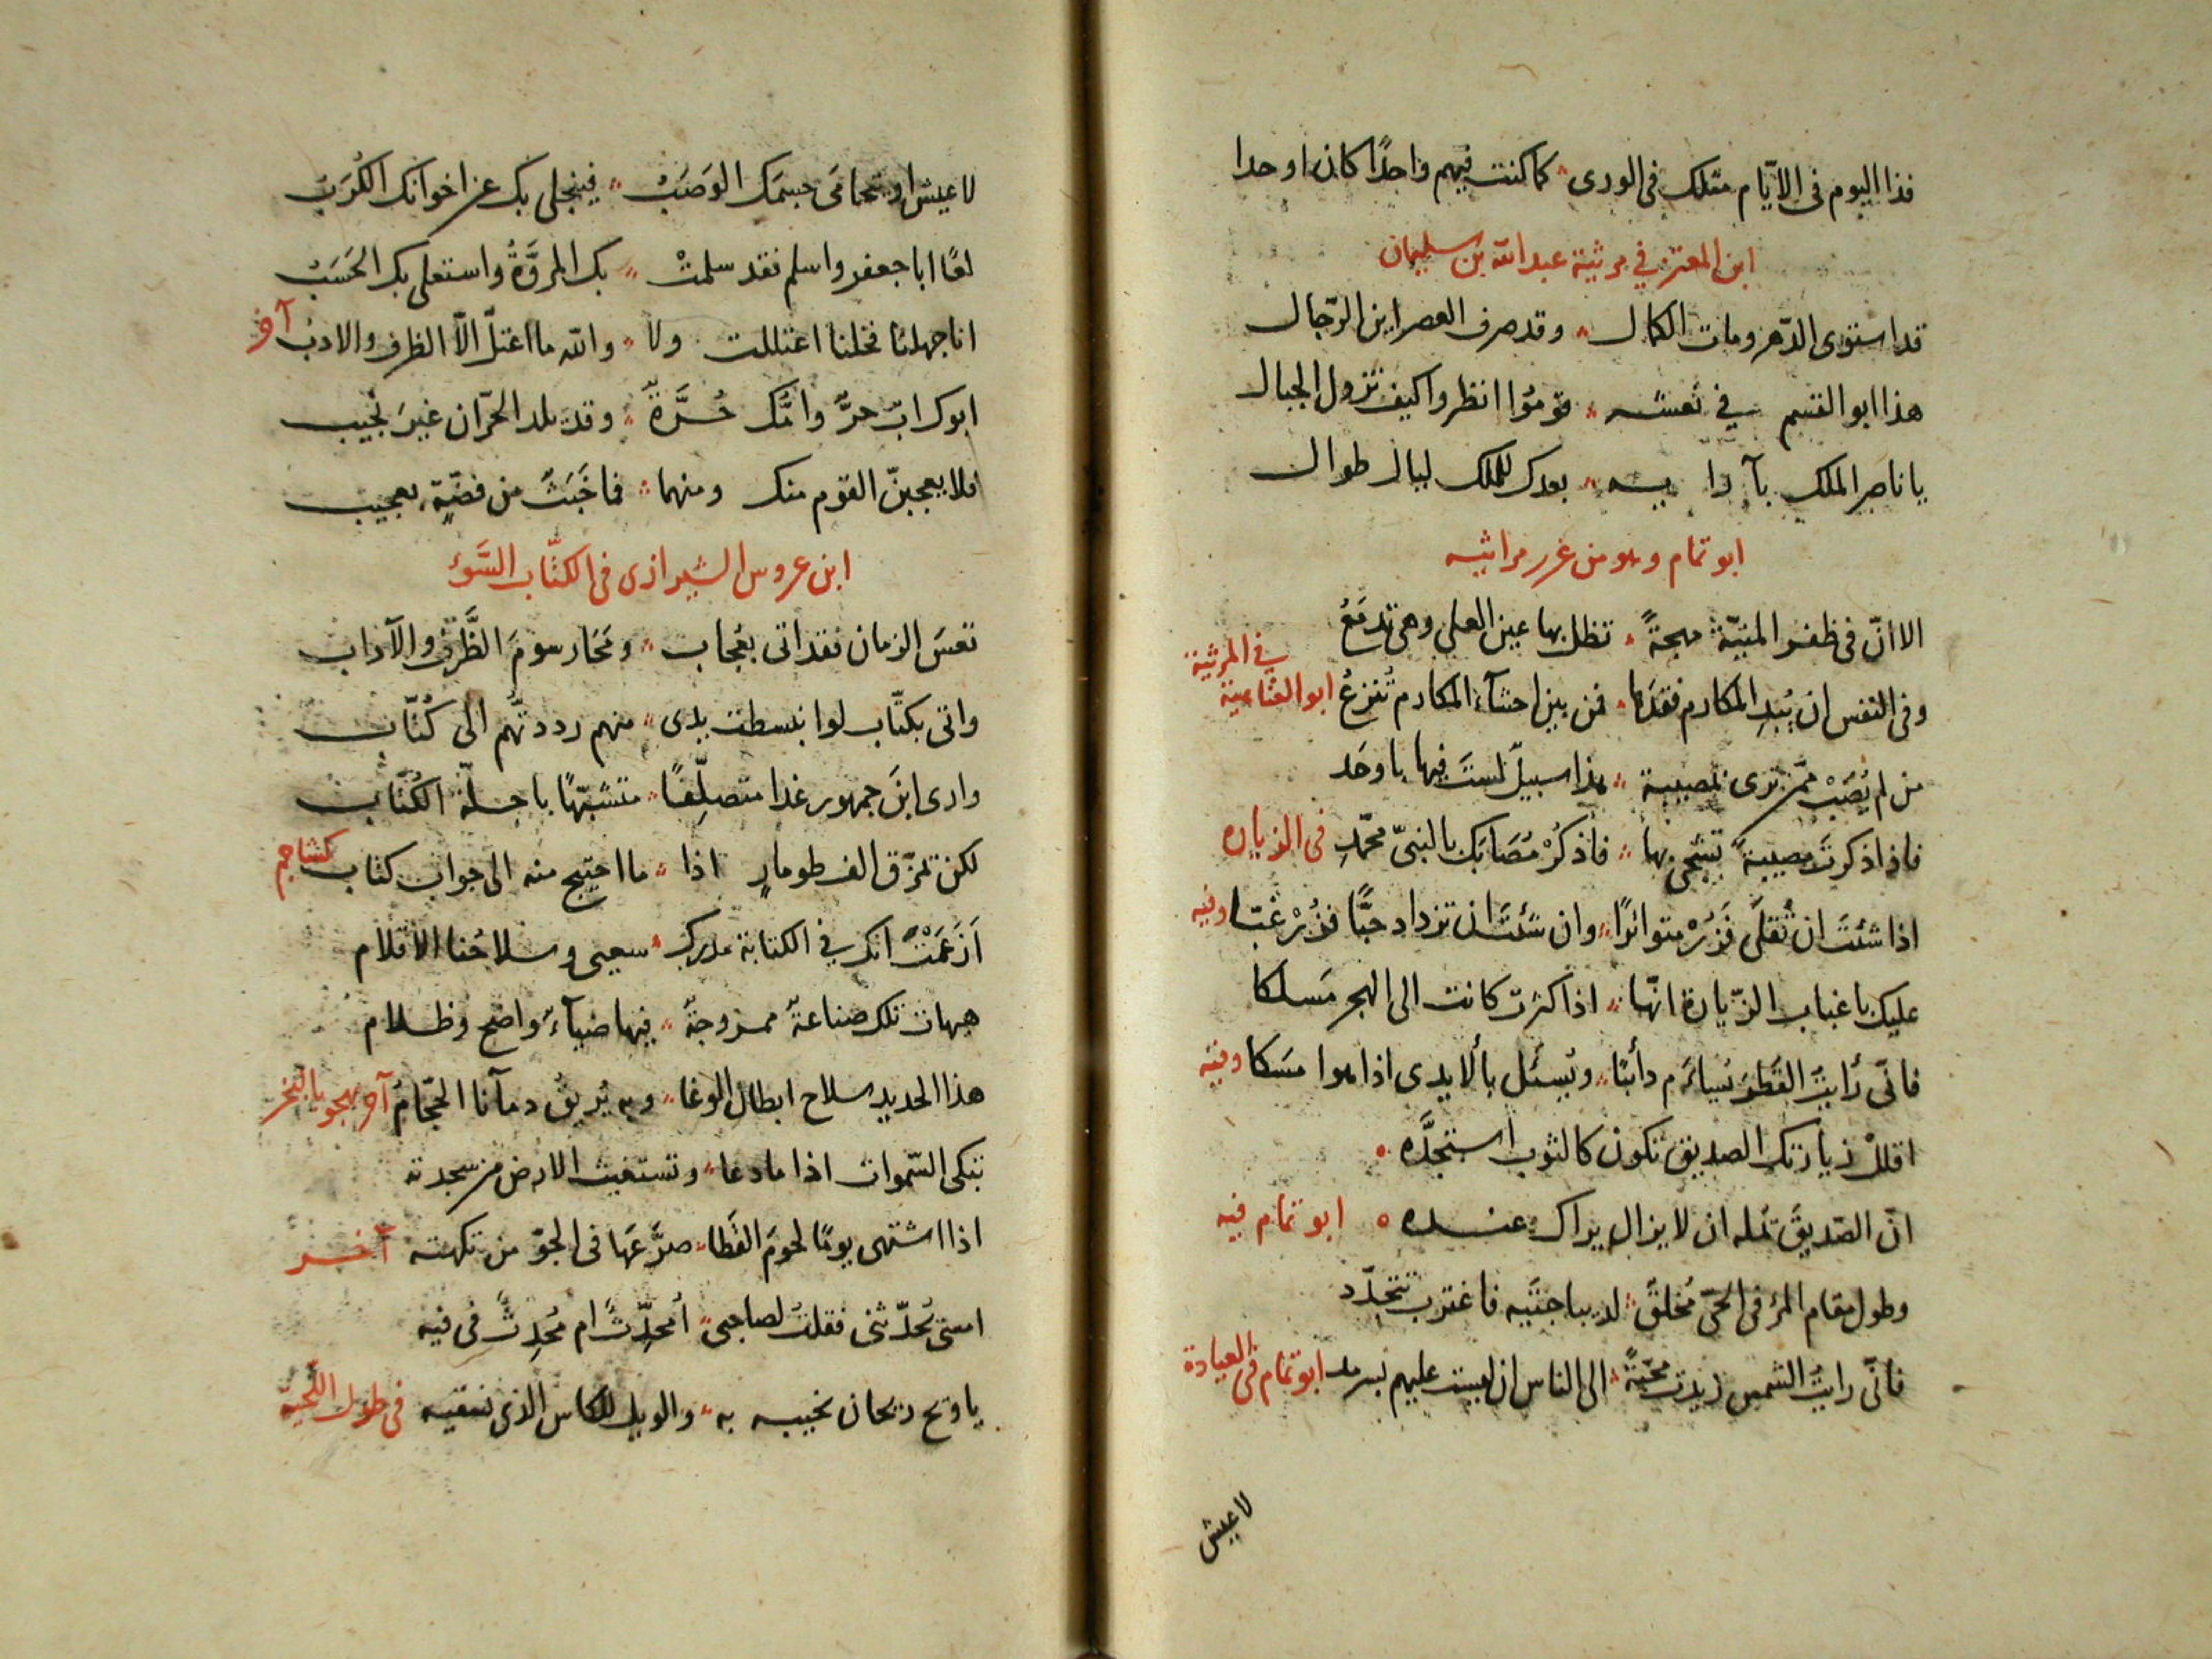 فذا اليوم فى الايّام مثلك فى الورى كما كنت فيهم واحدًا كان اوحدا
ابن المعتز في مرثية عبد الله بن سليمان
قد استوى الدّهر ومات الكمال وقد صرف العصر اين الرّجال
هذا ابو القسم في نعشه قوموا انظروا كيف تزول الجبال
يا ناصر الملك بآرايه بعدك للملك ليال طوال
ابو تمام وهو من غرر مراثيه
الا انّ فى ظفر المنيّة مهجةً تظل بها عين العلى وهى تدمَعُ
في المرثية
وفى النفس ان يُبْدِ المكارم فقدَها فمن بين احشآء المكارم تُنزعُ ابو العتاهية
من لم يُصَبْ ممّن ترى بمصيبة هذا سبيلٌ لستَ فيها باوحَد
فاذا ذكرتَ مصيبةً تشجى بها فاذكُرْ مُصَابَك بالنبىّ محمّدِ فى الزياره
اذا شئتَ ان تُقلَى فَزُرْ متواترًا وان شئتَ ان تزداد حبًّا فزُرْ غبّا وفيه
عليك باغباب الزّيارة انّها اذا كثرت كانت الى الهجر مَسلكا
فانّى رأيتُ القَطْرَ يُسأم دأبًا ويُسئل بالأيدى اذا هوا مَسكا وفيه
اقللْ زيارتك الصديق تكون كالثوب استجَدَّه
انّ الصّديقَ تمله ان لا يزال يراك عنده ابو تمام فيه
وطول مقام المرء فى الحىّ مُخلقٌ لديباجتَيه فاغترب تتجدّد
فانّى رايتُ الشمس زيدت محبّةً الى الناس ان ليست عليهم بسرمد ابو تمام فى العيادة
لا عيش
لا عيش او يتحامَى جسمَك الوَصَبُ فينجلى بك عن اخوانك الكُرَبُ
لعًا ابا جعفر واسلم فقد سلمتْ بك المروَّةُ واستعلى بك الحَسَبُ
انا جهلنا فخلنا اعتللت ولا والله ما اعتلّ الّا الظرف والادبُ آخر
ابوك ابٌ حرٌّ وامُّك حُرَّةٌ وقد يلد الحرّان غيرَ نجيب
فلا يعجبنّ القوم منك ومنهما فما خَبَثٌ من فضّةٍ بعجيب
ابن عروس الشيرازى فى الكتّاب السَّوء
تعسَ الزمان فقد اتى بعُجاب ومَحَا رسومَ الظَّرف والآداب
واتى بكتّاب لو انبسطت يدى منهم رددتُهم الى كُتّاب
وارى ابنَ جمهور غدا متصلّفًا متشبّهًا باجلّة الكُتّاب
لكن تمزّق الف طومارٍ اذا ما احتيج منه الى جواب كتاب كشاجم
اَزَعَمْتَ انك في الكتابة مدرك سعيى وسلاحُنا الاقلام
هيهات تلك صناعةٌ ممزوجةٌ فيها ضيآءٌ واضح وظلام
هذا الحديد سلاح ابطال الوغا وبه يُريقُ دمآنا الحجّامُ آخر يهجو بالبَخر
تبكى السّموات اذا ما دعا وتستغيث الارض من سجدته
اذا اشتهى يومًا لحومَ القَطا صرَّعَها فى الجوّ من نكهته آخر
امسى يُحدّثنى فقلتُ لصاحبى أمُحَدِّثٌ ام مُحدِثٌ فى فيه
يا ويح ريحان نحييه به والويل للكاس الذى نسقيه فى طول اللّحية